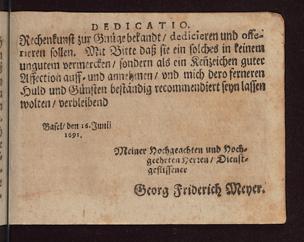 DEDICATIO.
Rechenkunst zur Gnüge bekandt / dedicieren und offe-
rieren sollen. Mit Bitte daß sie ein solches in keinem
ungutem vermercken / sondern als ein Keñzeichen guter
Affection auff- und annehmen / und mich dero ferneren
Huld und Günsten beständig recommendiert seyn lassen
wolten / verbleibend
Basel / den 16. Junii
1691.
Meiner Hochgeachten und Hoch-
geehrten Herren / Dienst-
geflissener
Georg Friderich Meyer.